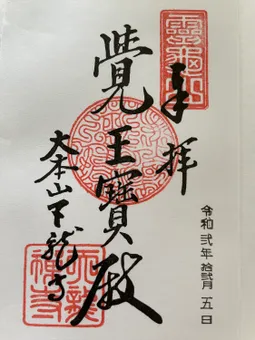 靈龜山
奉拝
令和弐年拾弐月五日
覺王寶殿
大本山天龍寺